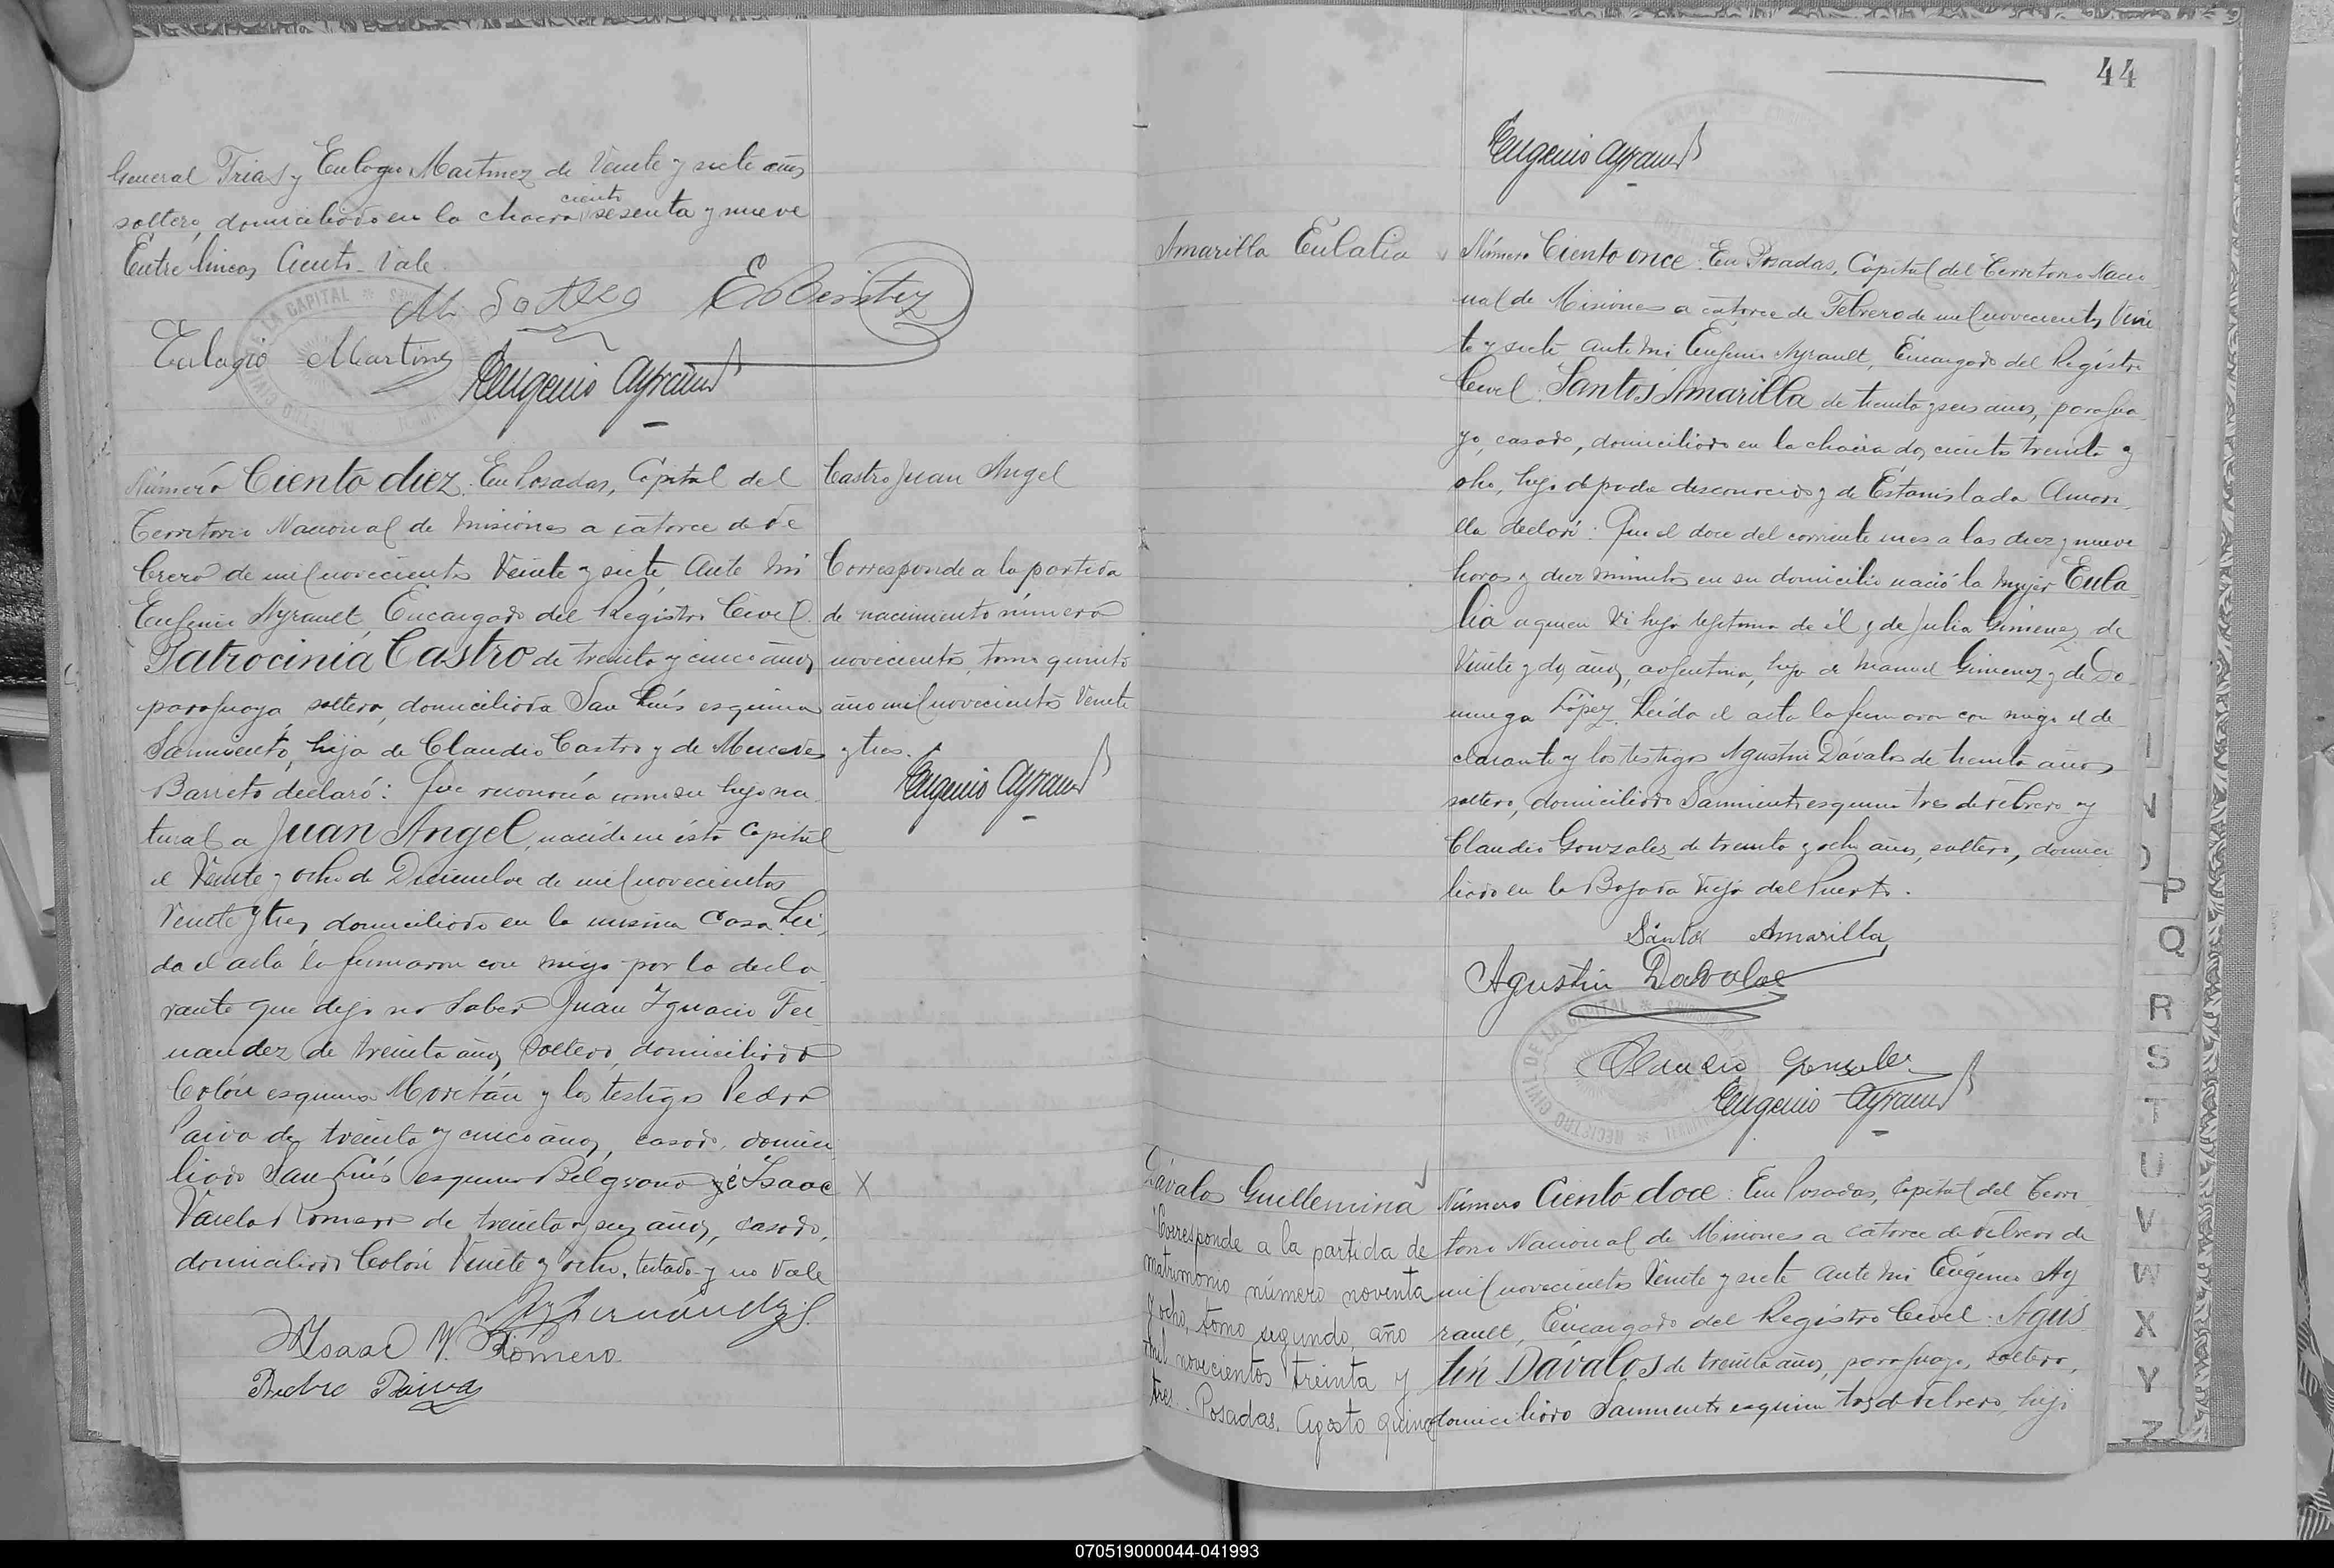 General Frias y Eulogio Martinez de Veinte y siete años
soltero, domiciliado en la chacra ciento sesenta y nueve
Entre lineas Ciento - Vale
E Benitez
Eulogio Martinez
Eugenio Ayrault
Número Ciento diez: En Posadas, Capital del
Territorio Nacional de Misiones a catorce de Fe
brero de mil novecientos Veinte y siete Ante Mi
Eugenio Ayrault, Encargado del Registro Civil.
Patrocinia Castro de treinta y cinco años
paraguaya, soltera, domiciliada San Luis esquina
Sarmiento, hija de Claudio Castro y de Mercedes
Barreto declaró: Que reconocía como su hijo na
tural a Juan Angel, nacido en ésta Capital
el Veinte y ocho de Diciembre de mil novecientos
Veinte y tres domiciliado en la misma Casa. Lei
da el acta la firmaron con migo por la decla
rante que dijo no saber Juan Ignacio Fer
nandez de treinta años soltero, domiciliado
Colón esquina Moritán y los testigos Pedro
Paiva de treinta y cinco años, casado, domici
liado San Luis esquina Belgrano y é Isaac
Varela Romero de treinta y seis años, casado,
domiciliado Colón Veinte y ocho. testado - y no Vale
Fernández
Isaac V. Romero
Pedro Paiva
Castro Juan Angel
Corresponde a la partida
de nacimiento número
novecientos, tomo quinto
año mil novecientos Veinte
y tres.
Eugenio Ayrault
X
44
Eugenio Ayrault
Amarilla Eulalia
Número Ciento once: En Posadas, Capital del Territorio Nacio
nal de Misiones a catorce de Febrero de mil novecientos Vein
te y siete ante mi Eugenio Ayrault, Encargado del Registro
Civil. Santos Amarilla de treinta y seis años, paragua
yo, casado, domiciliado en la chacra doscientos treinta y
ocho, hijo de padre desconocido y de Estanislada Amari
lla declaró: Que el doce del corriente mes a las diez y nueve
horas y diez minutos en su domicilio nació la mujer Eula
lia a quien vi hija legitima de él y de Julia Gimenez de
Veinte y dos años, argentina, hija de Manuel Gimenez y de Do
minga López. Leída el acta la firmaron con migo el de
clarante y los testigos Agustin Dávalos de treinta años
soltero, domiciliado Sarmiento esquina tres de Febrero y
Claudio Gonzalez de treinta y ocho años, soltero, domici
liado en la Bajada Vieja del Puerto.
Santos Amarilla
Agustin Davalos
Claudio Gonzalez
Eugenio Ayrault
REGISTRO CIVIL DE LA CAPITAL
Dávalos Guillermina
Corresponde a la partida de
matrimonio número noventa
y ocho, tomo segundo, año
mil novecientos treinta y
tres. - Posadas, Agosto quince
Número Ciento doce: En Posadas, Capital del Terri
torio Nacional de Misiones a catorce de Febrero de
mil novecientos Veinte y siete ante mi Eugenio Ay
rault, Encargado del Registro Civil. Agus
tín Dávalos de treinta años, paraguayo, soltero,
domiciliado Sarmiento esquina tres de Febrero, hijo
P
Q
R
S
T
U
V
W
X
Y
Z
070519000044-041993